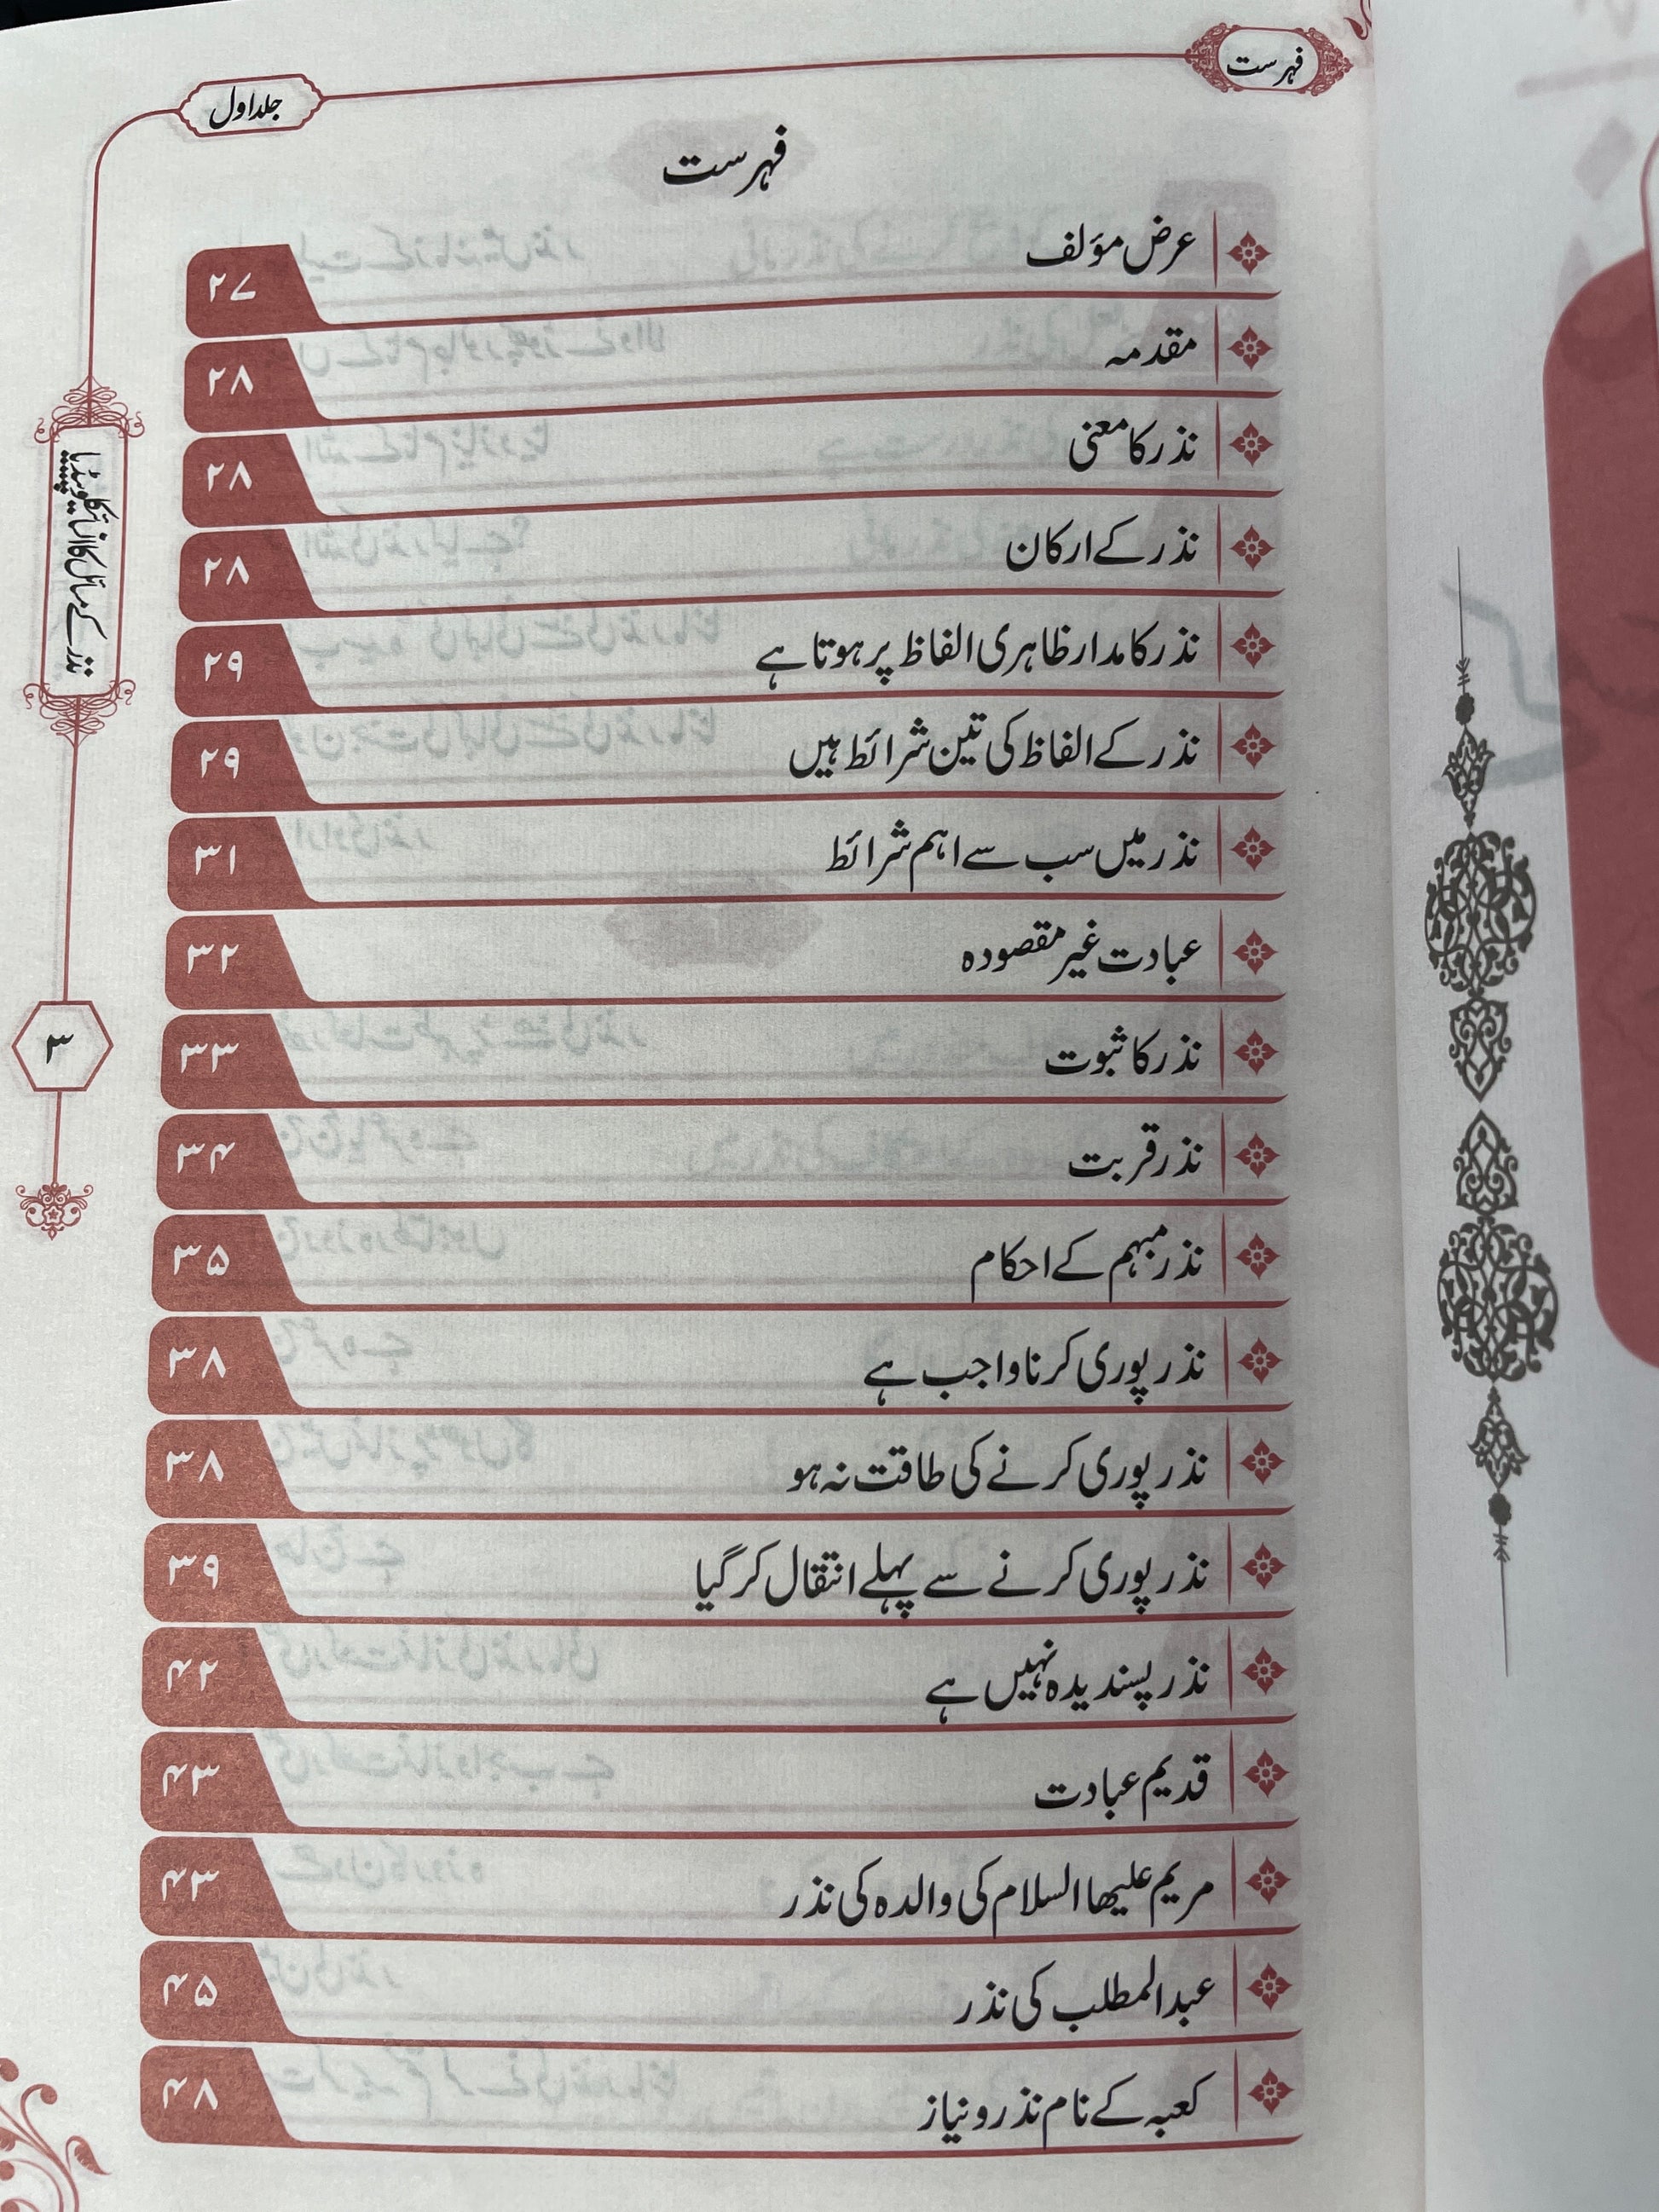 فہرست
جلد اول
فہرست
عرض مؤلف ۲۷
مقدمہ ۲۸
نذر کا معنی ۲۸
نذر کے ارکان ۲۸
نذر کا مدار ظاہری الفاظ پر ہوتا ہے ۲۹
نذر کے الفاظ کی تین شرائط ہیں ۲۹
نذر میں سب سے اہم شرائط ۳۱
عبادت غیر مقصودہ ۳۲
نذر کا ثبوت ۳۳
نذر قربت ۳۴
نذر مبہم کے احکام ۳۵
نذر پوری کرنا واجب ہے ۳۸
نذر پوری کرنے کی طاقت نہ ہو ۳۸
نذر پوری کرنے سے پہلے انتقال کر گیا ۳۹
نذر پسندیدہ نہیں ہے ۴۲
قدیم عبادت ۴۳
مریم علیھا السلام کی والدہ کی نذر ۴۳
عبدالمطلب کی نذر ۴۵
کعبہ کے نام نذر و نیاز ۴۸
نذر کے مسائل کا انسائیکلوپیڈیا
۳